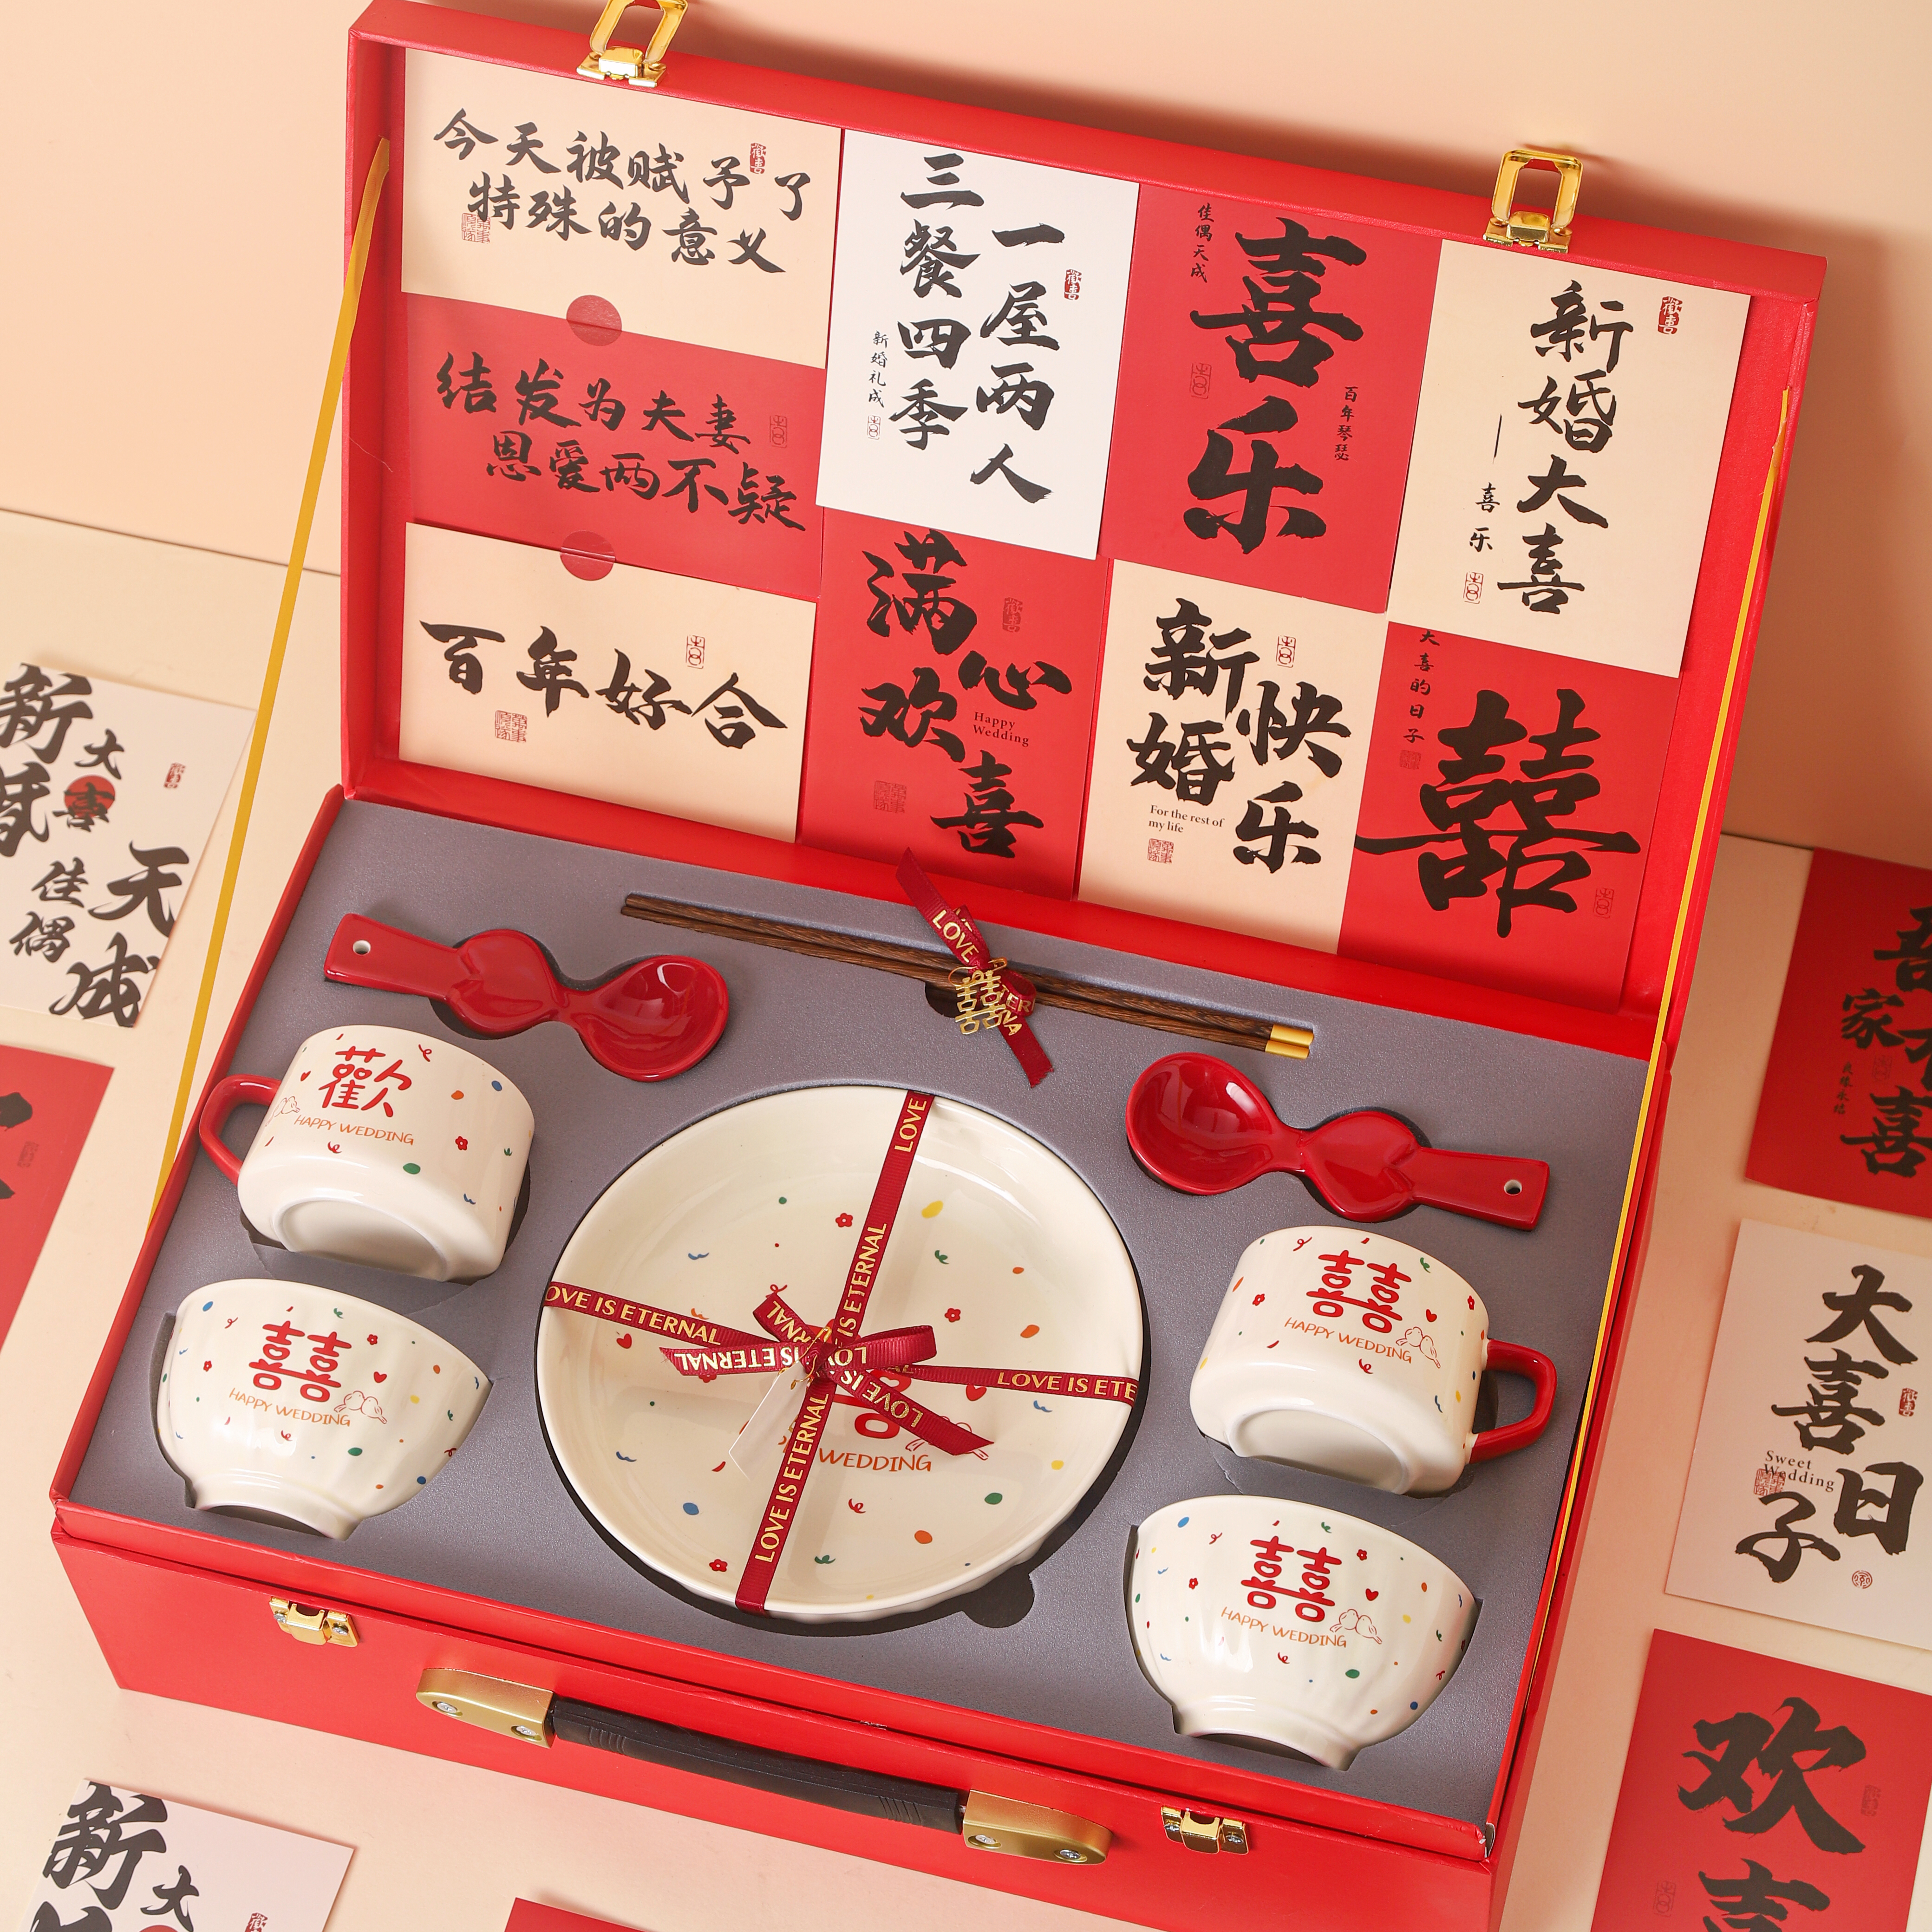 今天被赋予了
特殊的意义
结发为夫妻
恩爱两不疑
百年好合
一屋两人
三餐四季
新婚礼成
佳偶天成
喜乐
百年琴瑟
新婚大喜
喜乐
满心
欢喜
Happy
Wedding
新婚
快乐
For the rest of
my life
大喜的日子
囍
新婚
大喜
天成
佳偶
LOVE
囍
歡
HAPPY WEDDING
囍
HAPPY WEDDING
LOVE
LOVE IS ETERNAL
OVE IS ETERNAL
IS ETERNAL
LOVE IS
LOVE
LOVE IS ETE
LOVE IS ETERNAL
WEDDING
囍
HAPPY WEDDING
囍
HAPPY WEDDING
家有
喜
大喜
日子
Sweet
Wedding
欢
喜
新
大